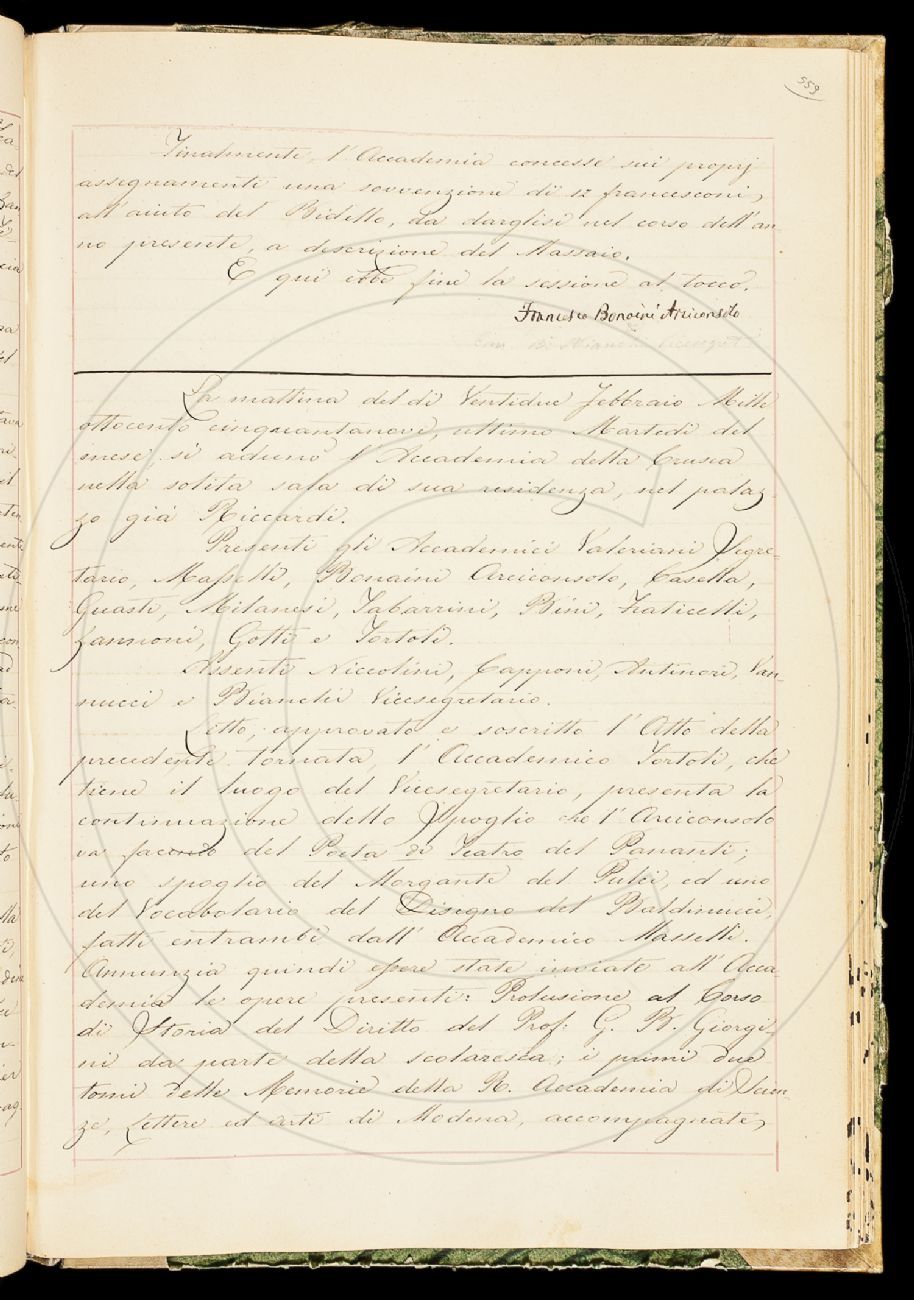 559
Finalmente, l'Accademia concesse sui proprj
assegnamenti una sovvenzione di 12 francesconi,
all'aiuto del Bidello, da darglisi nel corso dell'an
no presente, a descrizione del Massaio.
E qui ebbe fine la sessione al tocco.
Francesco Bonaini Arciconsolo
La mattina del dì Ventidue Febbraio Mille
ottocento cinquantanove, ultimo Martedì del
mese, si adunò l'Accademia della Crusca
nella solita sala di sua residenza, nel palaz-
zo già Riccardi.
Presenti gli Accademici Valeriani Segre-
tario, Masselli, Bonaini Arciconsolo, Casella,
Guasti, Milanesi, Tabarrini, Bini, Fraticelli,
Zannoni, Gotti e Tortoli.
Assenti Niccolini, Capponi, Antinori, Van-
nucci e Bianchi Vicesegretario.
Letto, approvato e soscritto l'Atto della
precedente tornata, l'Accademico Tortoli, che
tiene il luogo del Vicesegretario, presenta la
continuazione dello Spoglio che l'Arciconsolo
va facendo del Poeta di Teatro del Pananti;
uno spoglio del Morgante del Pulci, ed uno
del Vocabolario del Disegno del Baldinucci,
fatti entrambi dall'Accademico Masselli.
Annunzia quindi essere state inviate all'Acca
demia le opere presenti: Prolusione al Corso
di Storia del Diritto del Prof: G. B. Giorgi-
ni da parte della scolaresca; i primi due
tomi delle Memorie della R. Accademia di Scien
ze, Lettere ed arti di Modena, accompagnate,